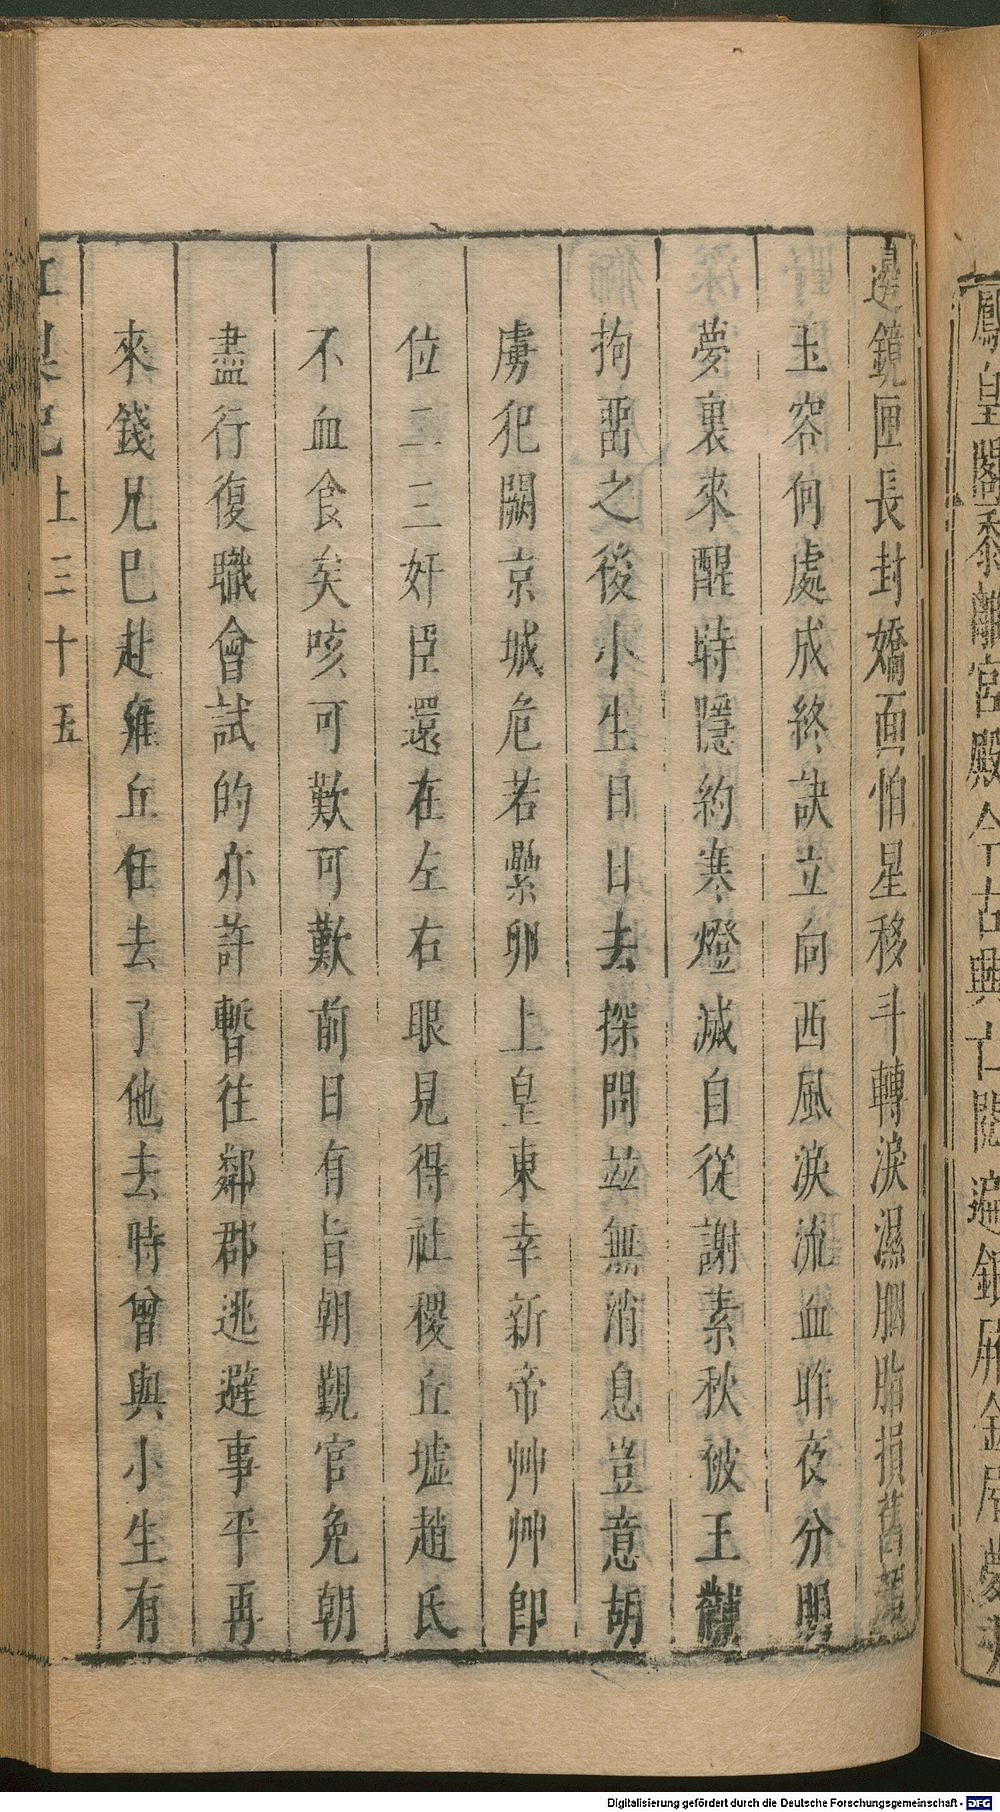 鳳皇閣黍離宮殿今古興亡閱遍鎖
邊鏡匣長封嬌面怕星移斗轉淚濕胭脂損舊
玉容何處成終訣立向西風淚流血昨夜分明
夢裏來醒時隱約寒燈滅自從謝素秋被王黼
拘畱之後小生日日去探問並無消息豈意胡
虜犯闕京城危若纍卵上皇東幸新帝艸艸即
位二三奸臣還在左右眼見得社稷丘墟趙氏
不血食矣咳可歎可歎前日有旨朝覲官免朝
盡行復職會試的亦許暫往鄰郡逃避事平再
來錢兄已赴雍丘任去了他去時曾與小生有
紅梨記 上 三十五
Digitalisierung gefördert durch die Deutsche Forschungsgemeinschaft - DFG